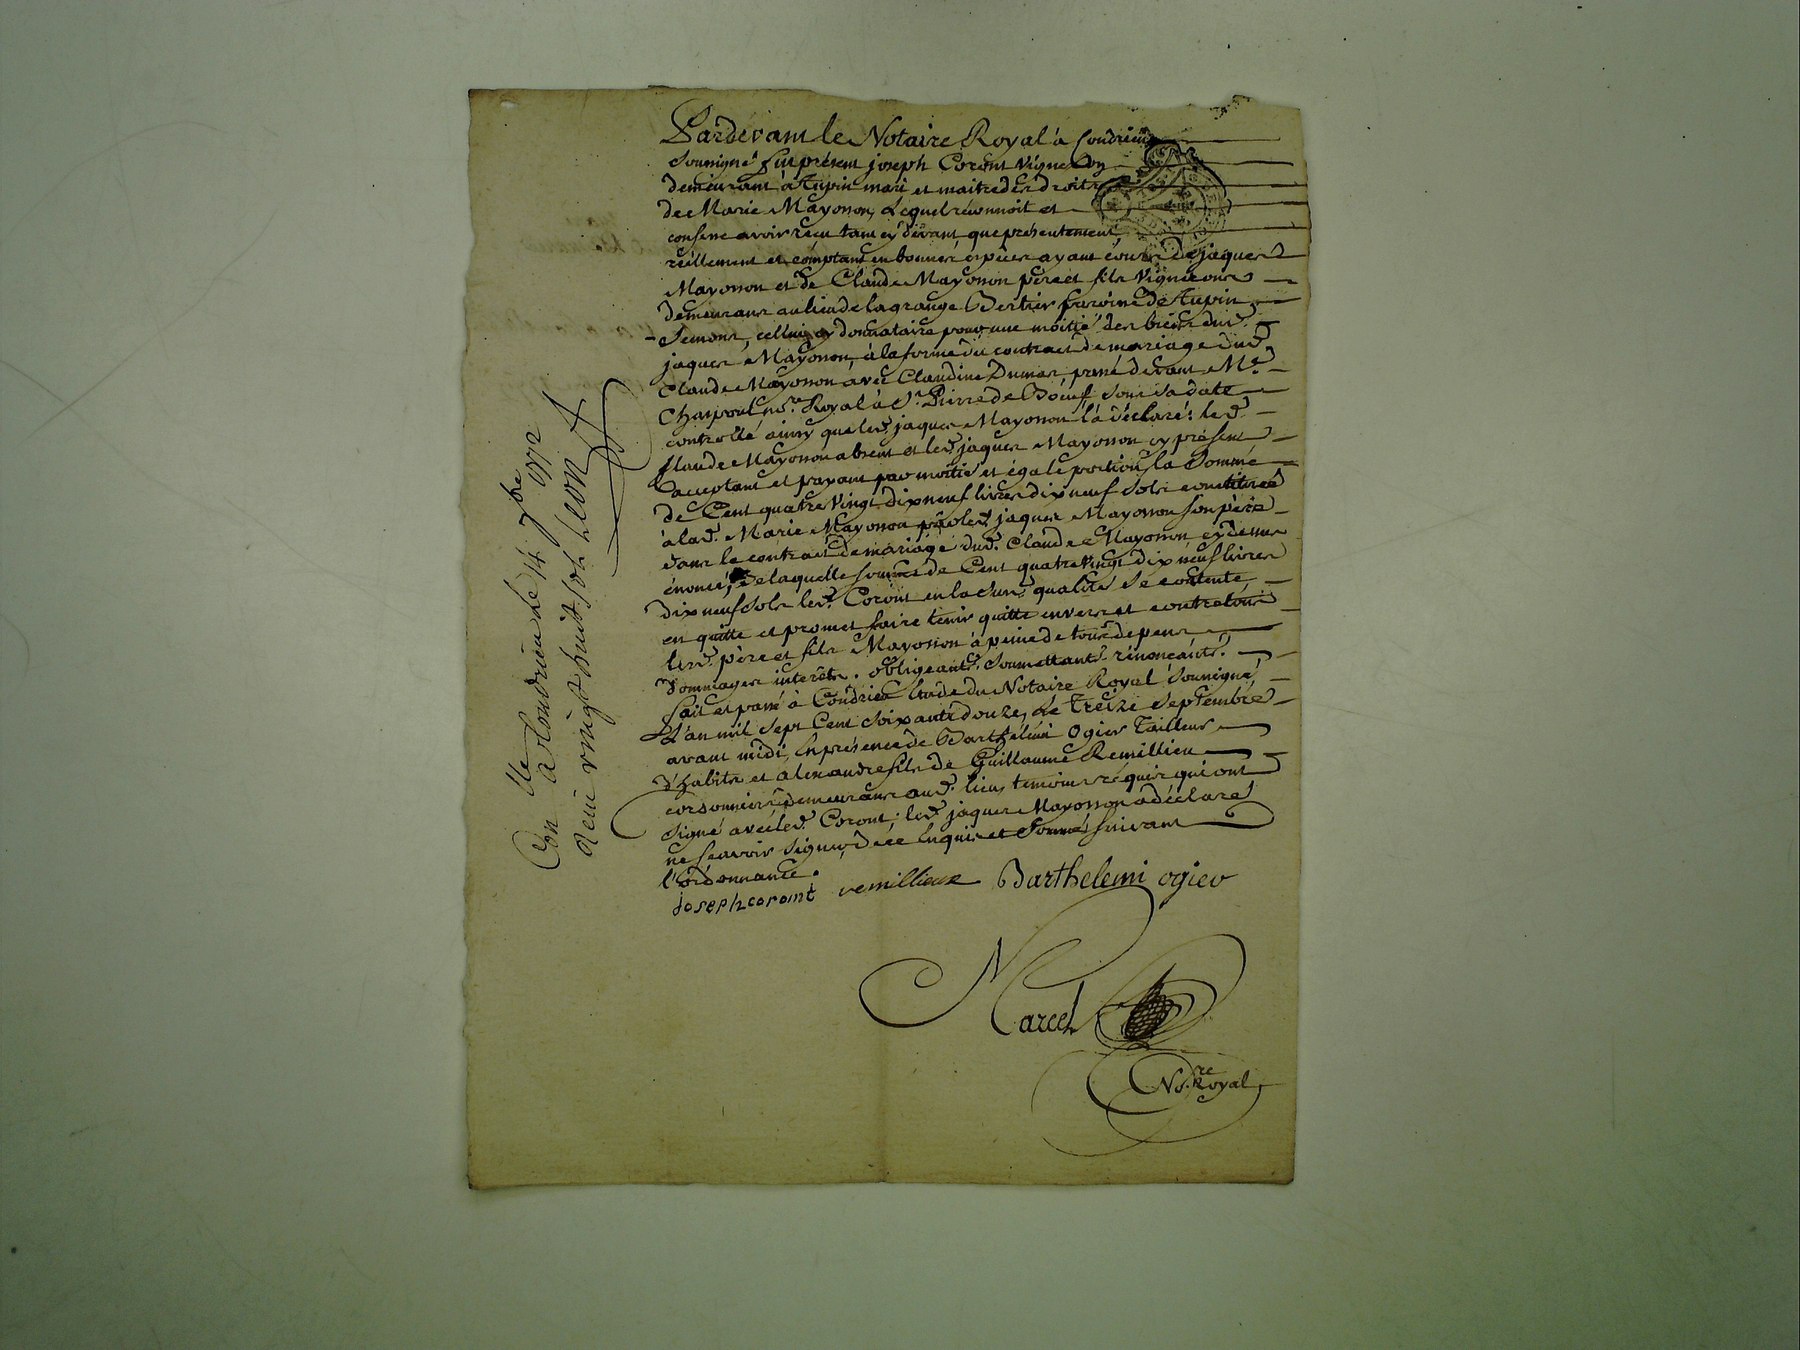 Pardevant le Notaire Royal à Condrieu
soussigné fut présent joseph Coront Vigneron
demeurant à Tupin mari et maitre des droits
de Marie Mayosson, Lequel reconnoit et
confesse avoir reçu tant cy devant que presentement,
réellement et comptant en bonnes espèces ayant cours de jaques
Mayosson et de Claude Mayosson père et fils Vignerons
demeurans au lieu de la grange Bertier paroisse de Tupin
Semons, celluy cy donnataire pour une moitié des biens dud.
jaques Mayosson, à la forme du contract de mariage dud.
Claude Mayosson avec Claudine Dumas, passé devant Me.
not.re Royal à St. Pierre de Boeuf sous sa date
controllé ainsy que led. jaques Mayosson l'a déclaré; led.
Claude Mayosson absent et led. jaques Mayosson cy présent
acceptant et payant par moitié et égale portion, la somme
de Cent quatre vingt dix neuf livres dix neuf sols constituée
à lad. Marie Mayosson par led. jaques Mayosson son père
dans le contract de mariage dud. Claude Mayosson cy dessus
énoncé, de laquelle somme de Cent quatre vingt dix neuf livres
dix neuf sols led. Coront en lad. qualité se contente,
en quitte et promet faire tenir quitte envers et contre tous
lesd. père et fils Mayosson à peine de tous depens
dommages interêts. obligeant. soumettant. rénonceant.
fait et passé à Condrieu Etude du Notaire Royal soussigné,
L'an mil sept Cent soixante douze, Le treize septembre
avant midi, en présence de Barthélémi Ogier Tailleur
d'habits et alexandre fils de Guillaume Remillieu
cordonnier demeurans aud. lieu, temoins requis qui ont
signé avec led. Coront; led. jaques Mayosson a déclaré
ne sçavoir signer, de ce enquis et sommé suivant
l'ordonnance.
joseph coront remillieux Barthelemi ogier
Marcel
No.re Royal
Con.lle a Condrieu le 14 7bre 1772
Recu vingt huit sols Leon